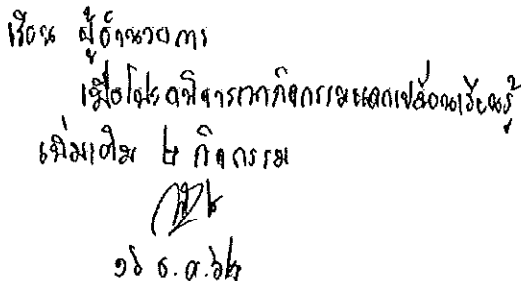 เรียน ผู้อำนวยการ
เพื่อโปรดพิจารณากิจกรรมแลกเปลี่ยนเรียนรู้
เพิ่มเติม ๒ กิจกรรม
ธ.ค. ๖๒